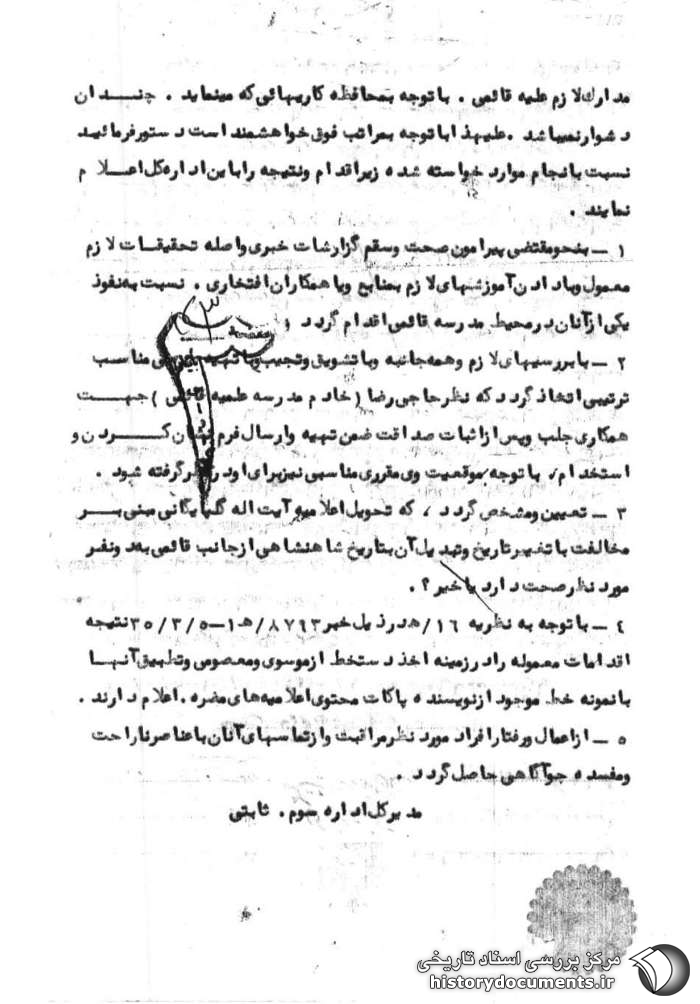 مدارك لازم علیه قائمی . باتوجه بمحافظه کاریهائی که مینماید . چندان
دشوارنمیباشد .علیهذا باتوجه بمراتب فوق خواهشمند است دستورفرمائید
نسبت بانجام موارد خواسته شده زیراقدام ونتیجه راباین اداره کل اعلام
نمایند .
١ – بنحومقتضی پیرامون صحت وسقم گزارشات خبری واصله تحقیقات لازم
معمول وبادادن آموزشهای لازم بمنابع ویاهمکاران افتخاری . نسبت به نفوذ
یکی ازآنان درمحیط مدرسه قائمی اقدام گردد
٢ – بابررسیهای لازم وهمه جانبه وباتشویق وتحبیب وبا تهیه مناسب
ترتیبی اتخاذ گردد که نظرحاجی رضا (خادم مدرسه علمیه قائمی ) جهت
همکاری جلب وپس ازاثبات صداقت ضمن تهیه وارسال فرم نشان کردن و
استخدام/. باتوجه/موقعیت وی مقرری مناسبی نیزبرای اودرنظرگرفته شود .
٣ – تعیین ومشخص گردد ، که تحویل اعلامیه آیت اله گلپایگانی مبنی بر
مخالفت باتغییرتاریخ وتبدیل آن بتاریخ شاهنشاهی ازجانب قائمی بعد ونفر
مورد نظرصحت دارد یاخیر ؟.
٤ – باتوجه به نظریه ١٦/هدرذیل خبر٨٧٦٣/هـ١–٣٥/٣/٥نتیجه
اقدامات معموله رادرزمینه اخذ دستخط ازموسوی ومعصومی وتطبیق آنها
بانمونه خط موجود ازنویسنده پاکات محتوی اعلامیه های مضره .اعلام دارند .
٥ – ازاعمال ورفتارافراد مورد نظرمراقبت وازتماسهای آنان باعناصرناراحت
ومفسده جوآگاهی حاصل گردد .
مدیرکل اداره سوم . ثابتی
مرکز بررسی اسناد تاریخی
historydocuments.ir